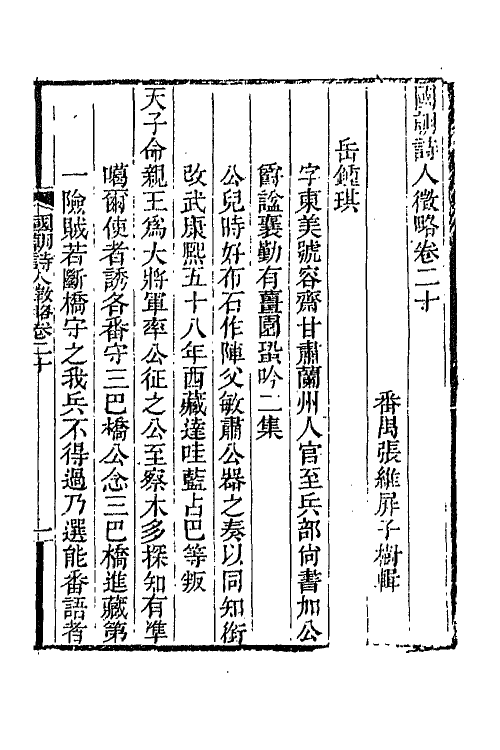 國朝詩人徵略卷二十
番禺張維屏子樹輯
岳鍾琪
字東美號容齋甘肅蘭州人官至兵部尚書加公
爵諡襄勤有薑園蛩吟二集
公兒時好布石作陣父敏肅公器之奏以同知銜
改武康熙五十八年西藏達哇藍占巴等叛
天子命親王為大將軍率公征之公至察木多探知有準
噶爾使者誘各番守三巴橋公念三巴橋進藏第
一險賊若斷橋守之我兵不得過乃選能番語者
國朝詩人徵略卷二十
一